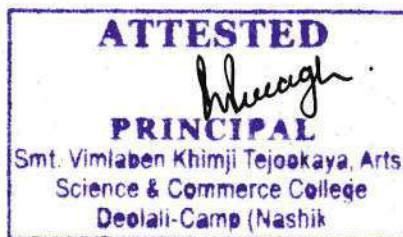 ATTESTED
PRINCIPAL
Smt. Vimlaben Khimji Tejookaya, Arts
Science & Commerce College
Deolali-Camp (Nashik